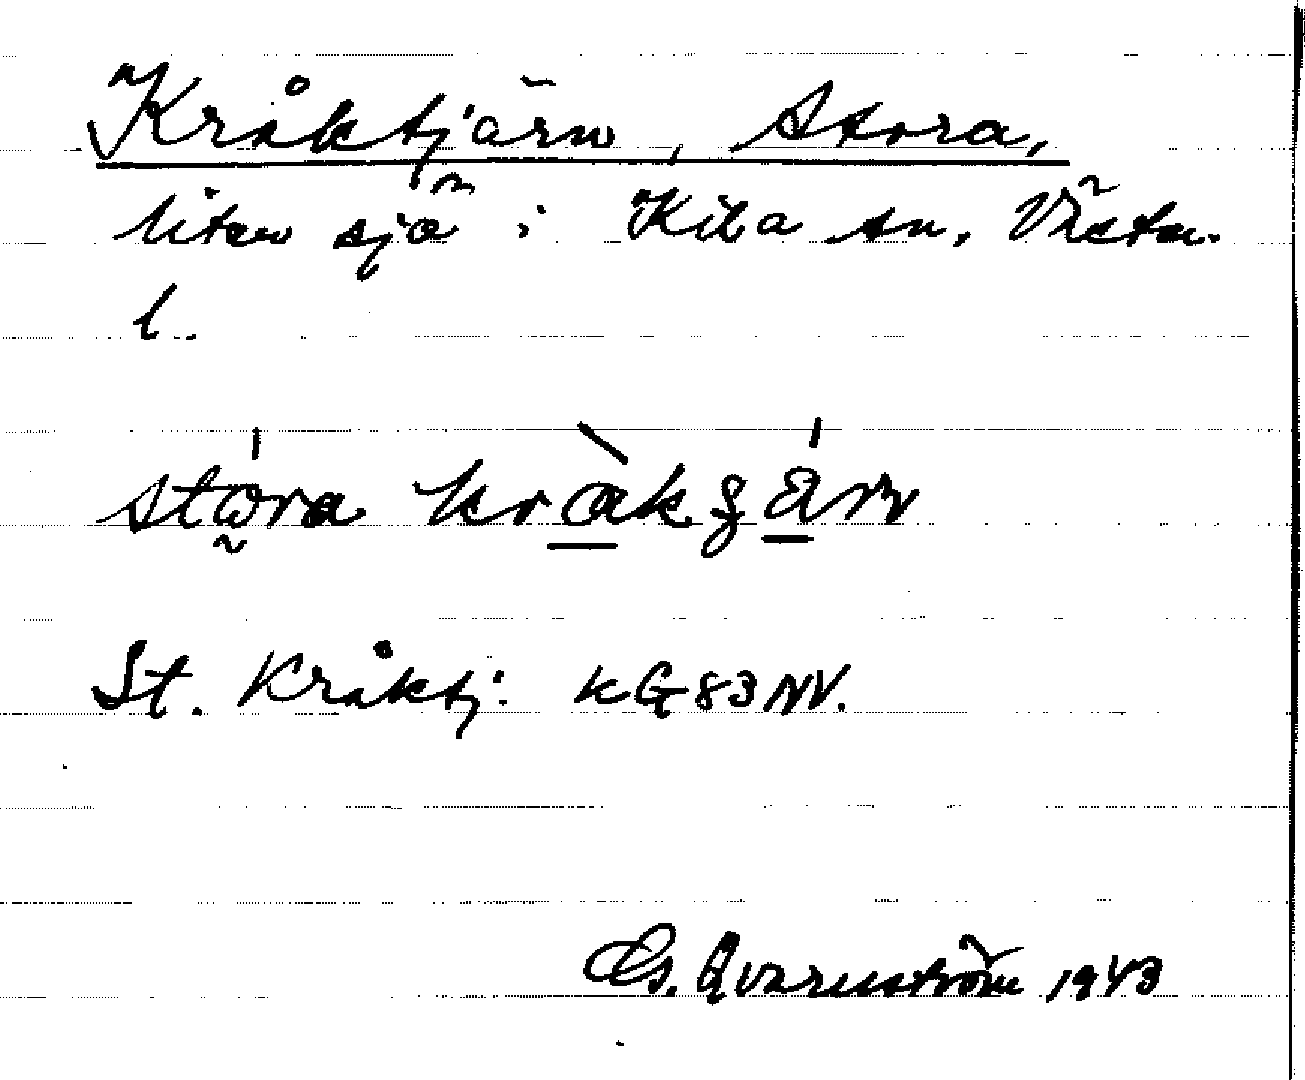 Kråktjärn, Stora,
liten sjö i Kila sn, Västm.
l.
stóra kràkʒárn
St. Kråktj. KG83NV.
Qvarnström 1943